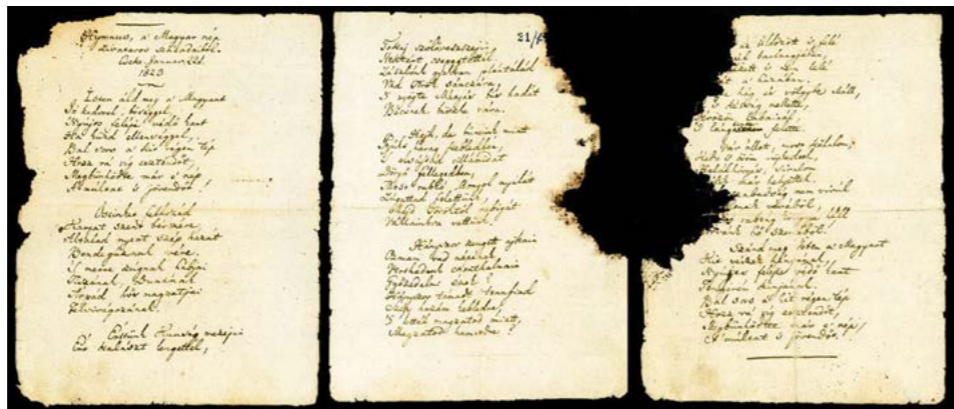 Hymnus, a' Magyar nép
zivataros századaiból.
Cseke Januar. 22d.
1823
Isten áldd meg a' Magyart
Jó kedvvel, bőséggel,
Nyújts feléje védő kart
Ha küzd ellenséggel,
Bal sors a' kit régen tép
Hozz rá víg esztendőt,
Megbünhödte már e' nép
A' multat 's jövendőt!
Őseinket felhozád
Kárpát szent bérczére,
Általad nyert szép hazát
Bendegúznak vére.
'S merre zúgnak habjai
Tiszának, Dunának,
Árpád hős magzatjai
Felvirágozának.
Értünk Kunság mezején
Ért kalászt lengettél,
Tokaj szőlővesszein
Nektárt csepegtettél.
Zászlónk gyakran plántálád
Vad Török sánczára,
'S nyögte Mátyás bús hadát
Bécsnek büszke vára.
Hajh, de bűneink miatt
Gyúlt harag kebledben,
'S elsújtád villámidat
Dörgő fellegedben,
Most rabló Mongol nyilát
Zúgattad felettünk,
Majd Töröktől
Vállainkra vettünk.
Hányszor zengett ajkain
Ozman vad népének
Vert hadunk csonthalmain
Győzedelmi ének!
Hányszor támadt tenfiad
Szép hazám kebledre,
'S lettél magzatod miatt,
Magzatod hamvedre?
az üldözött 's felé
barlangjában,
's nem lelé
a' hazában.
hág és völgybe száll,
és kétség mellette,
Vérözön lábainál,
'S lángtenger felette.
Vár állott, most kőhalom;
Kedv 's öröm röpkedtek,
Halálhörgés, siralom
már helyettek.
szabadság nem virúl
véréből,
rabság könnye hull
hő szeméből.
Szánd meg Isten a' Magyart
Kit vészek hányának,
Nyújts feléje védő kart
Tengerén kínjának.
Bal sors a' kit régen tép
Hozz rá víg esztendőt,
Megbünhödte már e' nép
A' multat 's jövendőt!